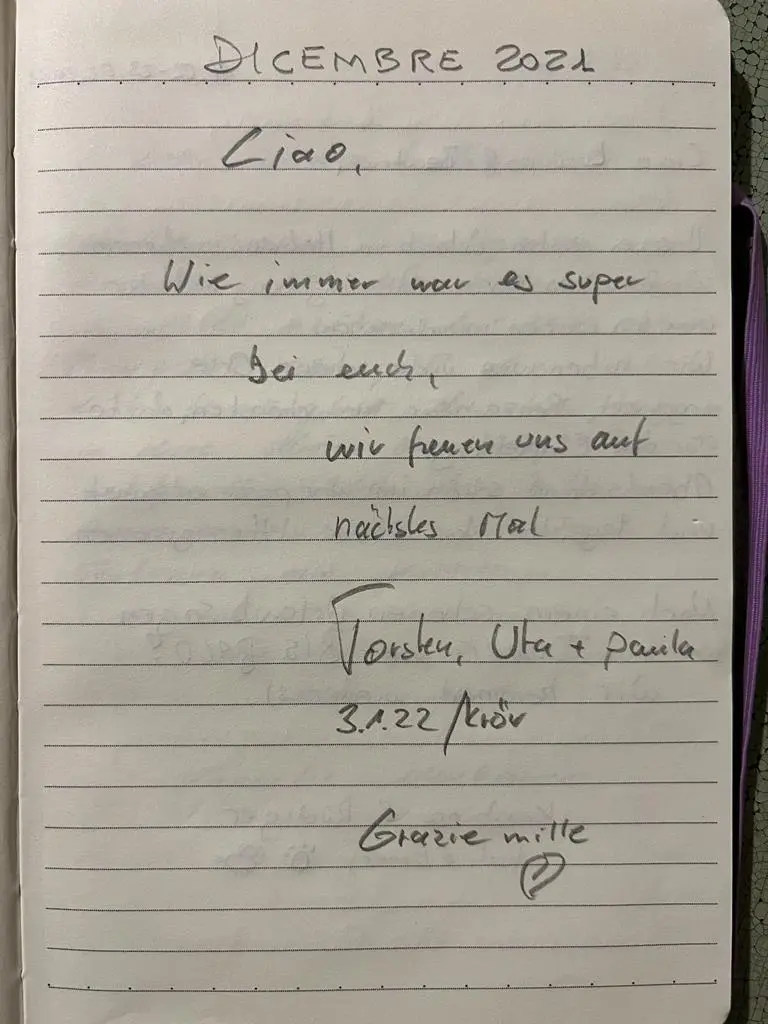 DICEMBRE 2021
Ciao,
Wie immer war es super
bei euch,
wir freuen uns auf
nächstes Mal
Torsten, Uta + Paula
3.1.22 / Kröv
Grazie mille